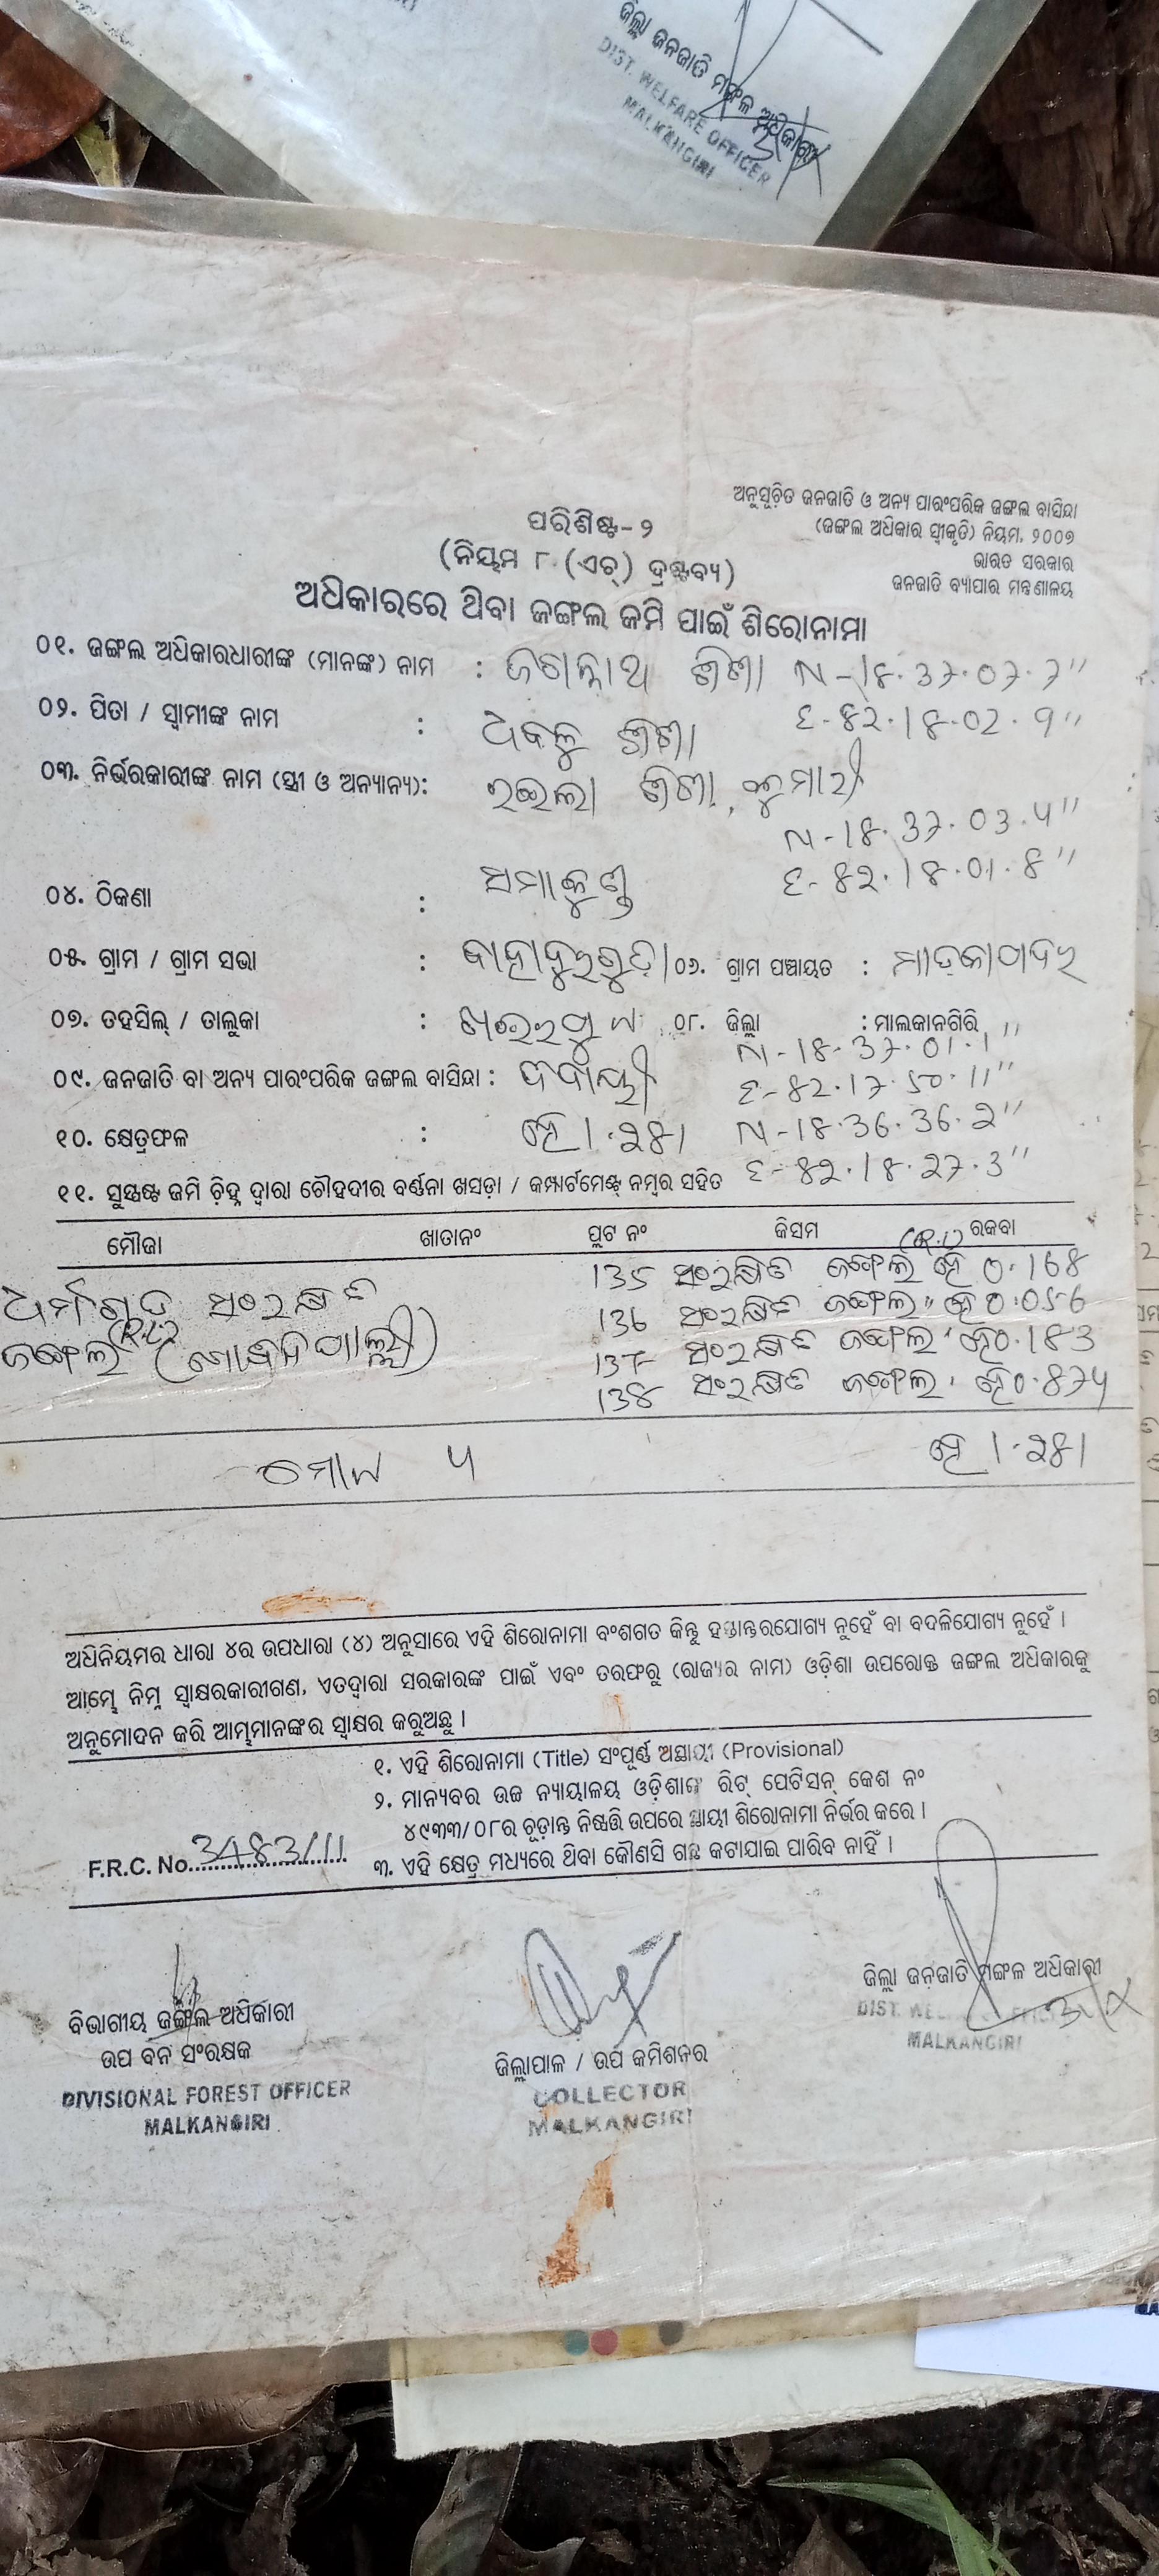 ଜିଲ୍ଲା ଜନଜାତି ମଙ୍ଗଳ ଅଧିକାରୀ
DIST. WELFARE OFFICER
MALKANGIRI
ଅନୁସୂଚିତ ଜନଜାତି ଓ ଅନ୍ୟ ପାରଂପରିକ ଜଙ୍ଗଲ ବାସିନ୍ଦା
(ଜଙ୍ଗଲ ଅଧିକାର ସ୍ୱୀକୃତି) ନିୟମ, ୨୦୦୭
ଭାରତ ସରକାର
ଜନଜାତି ବ୍ୟାପାର ମନ୍ତ୍ରଣାଳୟ
ପରିଶିଷ୍ଟ-୨
(ନିୟମ ୮ (ଏଚ୍) ଦ୍ରଷ୍ଟବ୍ୟ)
ଅଧିକାରରେ ଥିବା ଜଙ୍ଗଲ ଜମି ପାଇଁ ଶିରୋନାମା
୦୧. ଜଙ୍ଗଲ ଅଧିକାରଧାରୀଙ୍କ (ମାନଙ୍କ) ନାମ : ଜଗନ୍ନାଥ ଶିଶା N-18.37.07.7"
୦୨. ପିତା / ସ୍ୱାମୀଙ୍କ ନାମ : ଧବଳୁ ଶିଶା E-82.18.02.9"
୦୩. ନିର୍ଭରକାରୀଙ୍କ ନାମ (ସ୍ତ୍ରୀ ଓ ଅନ୍ୟାନ୍ୟ): ରଇଲା ଶିଶା, କୁମାରୀ
N-18.37.03.4"
୦୪. ଠିକଣା : ସମାକୁଣ୍ଡ E-82.18.01.8"
୦୫. ଗ୍ରାମ / ଗ୍ରାମ ସଭା : ୦୬. ଗ୍ରାମ ପଞ୍ଚାୟତ :
୦୭. ତହସିଲ୍ / ତାଲୁକା : ଖଇରପୁଟ ୦୮. ଜିଲ୍ଲା : ମାଲକାନଗିରି
N-18.37.01.1"
୦୯. ଜନଜାତି ବା ଅନ୍ୟ ପାରଂପରିକ ଜଙ୍ଗଲ ବାସିନ୍ଦା : ଦିଦାୟୀ E-82.17.50.11"
୧୦. କ୍ଷେତ୍ରଫଳ : ହେ 1.281 N-18.36.36.2"
E-82.18.27.3"
୧୧. ସୁସ୍ପଷ୍ଟ ଜମି ଚିହ୍ନ ଦ୍ୱାରା ଚୌହଦୀର ବର୍ଣ୍ଣନା ଖସଡ଼ା / କମ୍ପାର୍ଟମେଣ୍ଟ୍ ନମ୍ବର ସହିତ
ମୌଜା ଖାତାନଂ ପ୍ଲଟ ନଂ କିସମ ରକବା
135 ସଂରକ୍ଷିତ ଜଙ୍ଗଲ ହେ 0.168
ସଂରକ୍ଷିତ 136 ସଂରକ୍ଷିତ ଜଙ୍ଗଲ " ହେ 0.056
ଜଙ୍ଗଲ 137 ସଂରକ୍ଷିତ ଜଙ୍ଗଲ ହେ 0.183
138 ସଂରକ୍ଷିତ ଜଙ୍ଗଲ ହେ 0.874
ମୋଟ 4 ହେ 1.281
ଅଧିନିୟମର ଧାରା ୪ର ଉପଧାରା (୪) ଅନୁସାରେ ଏହି ଶିରୋନାମା ବଂଶଗତ କିନ୍ତୁ ହସ୍ତାନ୍ତରଯୋଗ୍ୟ ନୁହେଁ ବା ବଦଳିଯୋଗ୍ୟ ନୁହେଁ ।
ଆମ୍ଭେ ନିମ୍ନ ସ୍ୱାକ୍ଷରକାରୀଗଣ, ଏତଦ୍ୱାରା ସରକାରଙ୍କ ପାଇଁ ଏବଂ ତରଫରୁ (ରାଜ୍ୟର ନାମ) ଓଡ଼ିଶା ଉପରୋକ୍ତ ଜଙ୍ଗଲ ଅଧିକାରକୁ
ଅନୁମୋଦନ କରି ଆମ୍ଭମାନଙ୍କର ସ୍ୱାକ୍ଷର କରୁଅଛୁ ।
୧. ଏହି ଶିରୋନାମା (Title) ସଂପୂର୍ଣ୍ଣ ଅସ୍ଥାୟୀ (Provisional)
୨. ମାନ୍ୟବର ଉଚ୍ଚ ନ୍ୟାୟାଳୟ ଓଡ଼ିଶାଙ୍କ ରିଟ୍ ପେଟିସନ୍ କେଶ ନଂ
୪୯୩୩/୦୮ର ଚୂଡ଼ାନ୍ତ ନିଷ୍ପତ୍ତି ଉପରେ ସ୍ଥାୟୀ ଶିରୋନାମା ନିର୍ଭର କରେ ।
F.R.C. No. 3483/11
୩. ଏହି କ୍ଷେତ୍ର ମଧ୍ୟରେ ଥିବା କୌଣସି ଗଛ କଟାଯାଇ ପାରିବ ନାହିଁ ।
ବିଭାଗୀୟ ଜଙ୍ଗଲ ଅଧିକାରୀ
ଉପ ବନ ସଂରକ୍ଷକ
DIVISIONAL FOREST OFFICER
MALKANGIRI
ଜିଲ୍ଲାପାଳ / ଉପ କମିଶନର
COLLECTOR
MALKANGIRI
ଜିଲ୍ଲା ଜନଜାତି ମଙ୍ଗଳ ଅଧିକାରୀ
DIST. WELFARE OFFICER
MALKANGIRI